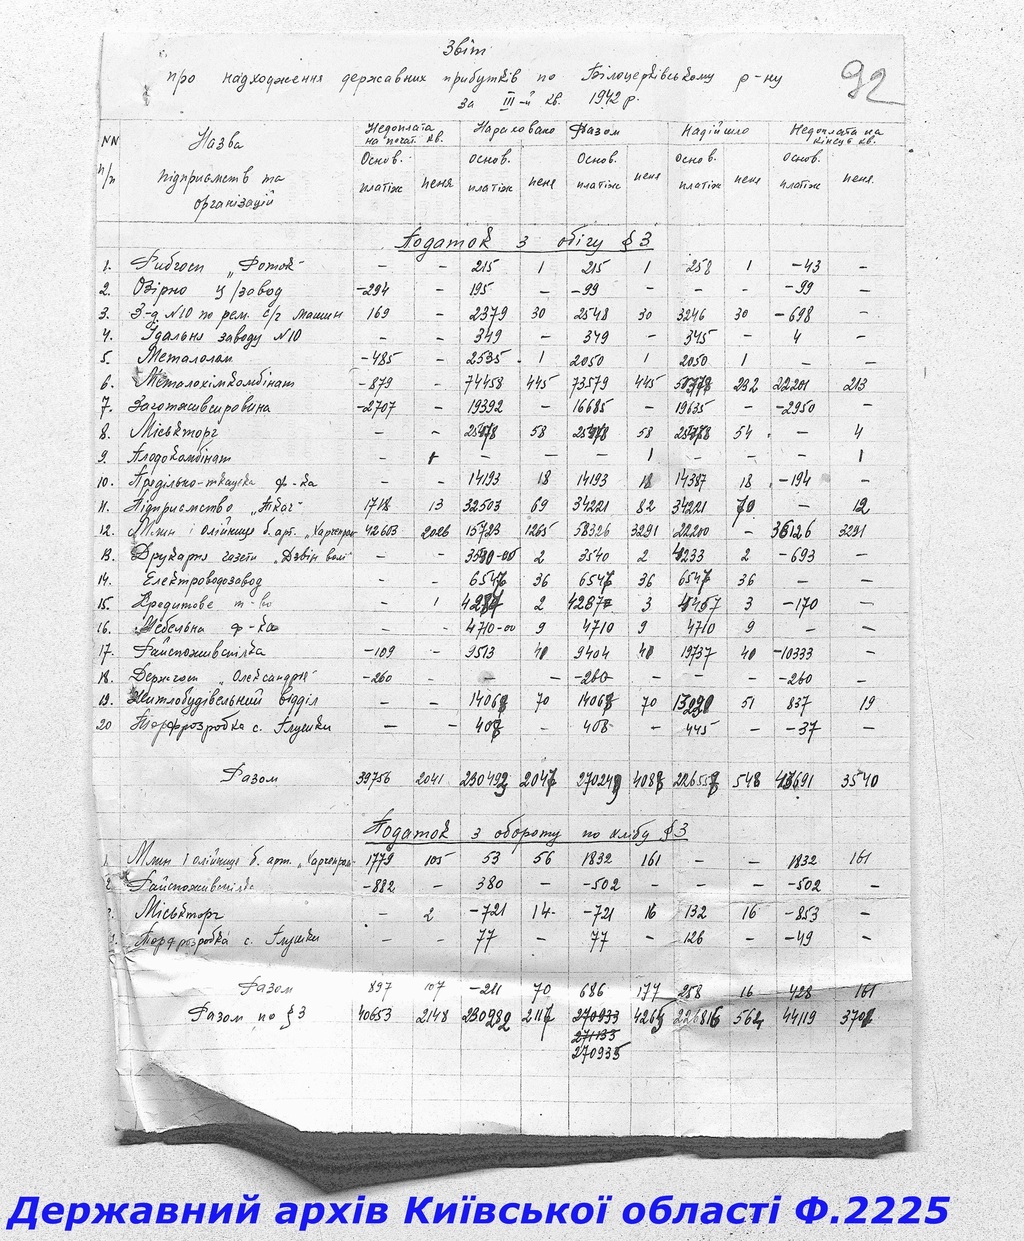 Звіт
про надходження державних прибутків по Білоцерківському р-ну
за III-й кв. 1942 р.
92
NN п/п Назва підприємств та організацій Недоплата на почат. кв. Нараховано Разом Надійшло Недоплата на кінець кв.
Основ. платіж пеня основ. платіж пеня Основ. платіж пеня основ. платіж пеня основ. платіж пеня.
Податок з обігу § 3
1. Рибгосп „Роток" - - 215 1 215 1 258 1 -43 -
2. Озірно ц/завод -294 - 195 - -99 - - - -99 -
3. З-д N10 по рем. с/г машин 169 - 2379 30 2548 30 3246 30 -698 -
4. Їдальня заводу N10 - - 349 - 349 - 345 - 4 -
5. Металолом -485 - 2535 1 2050 1 2050 1 - -
6. Металохімкомбінат -879 - 74458 445 73579 445 232 22201 213
7. Заготживсировина -2707 - 19392 - 16685 - 19635 - -2950 -
8. Міськторг - - 58 58 54 - 4
9. Плодокомбінат - 1 - - - 1 - - - 1
10. Прядільно-ткацька ф-ка - - 14193 18 14193 18 14387 18 -194 -
11. Підприємство „Пікач" 1718 13 32503 69 34221 82 34221 70 - 12
12. Млин і олійниця б. арт. „Харчепром" 42603 2026 15723 1265 58326 3291 22200 - 36126 3291
13. Друкарня газети „Дзвін волі" - - 3540-00 2 3540 2 4233 2 -693 -
14. Електроводозавод - - 6547 36 6547 36 6547 36 - -
15. Кредитове т-во - 1 4287 2 4287 3 4457 3 -170 -
16. Мебельна ф-ка - - 4710-00 9 4710 9 4710 9 - -
17. Райспоживспілка -109 - 9513 40 9404 40 19737 40 -10333 -
18. Держгосп „Олександрія" -260 - - - -260 - - - -260 -
19. Житлобудівельний відділ - - 14067 70 14067 70 13230 51 837 19
20 Торфрозробка с. Глушки - - 408 - 408 - 445 - -37 -
Разом 39756 2041 230492 2047 270249 4088 226558 548 43691 3540
Податок з обороту по хлібу § 3
1. Млин і олійниця б. арт. „Харчепром" 1779 105 53 56 1832 161 - - 1832 161
2. Райспоживспілка -882 - 380 - -502 - - -502 -
3. Міськторг - 2 -721 14 -721 16 132 16 -853 -
4. Торфрозробка с. Глушки - - 77 - 77 - 126 - -49 -
Разом 897 107 -211 70 686 177 258 16 428 161
Разом по § 3 40653 2148 230982 2117 270933 4265 226816 564 44119 3701
271133
270935
Державний архів Київської області Ф.2225